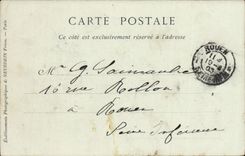 CARTE POSTALE
Ce côté est exclusivement réservé à l'adresse
ROUEN
Mr G.
16 rue Rollon
à
Rouen
Seine Inférieure
Etablissements Photographiques de NEURDEIN Frères. — Paris